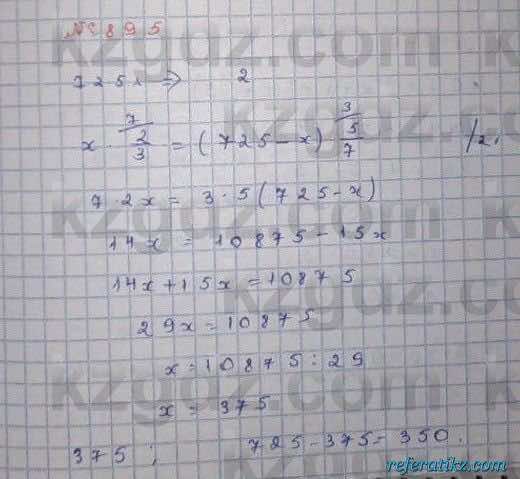 № 895
725 => 2
x · 7/ 2/3 = (725 - x) 3/ 5/7
7 · 2x = 3 · 5 (725 - x)
14x = 10875 - 15x
14x + 15x = 10875
29x = 10875
x = 10875 : 29
x = 375
375 ; 725 - 375 = 350.
kzgdz.com
referatikz.com